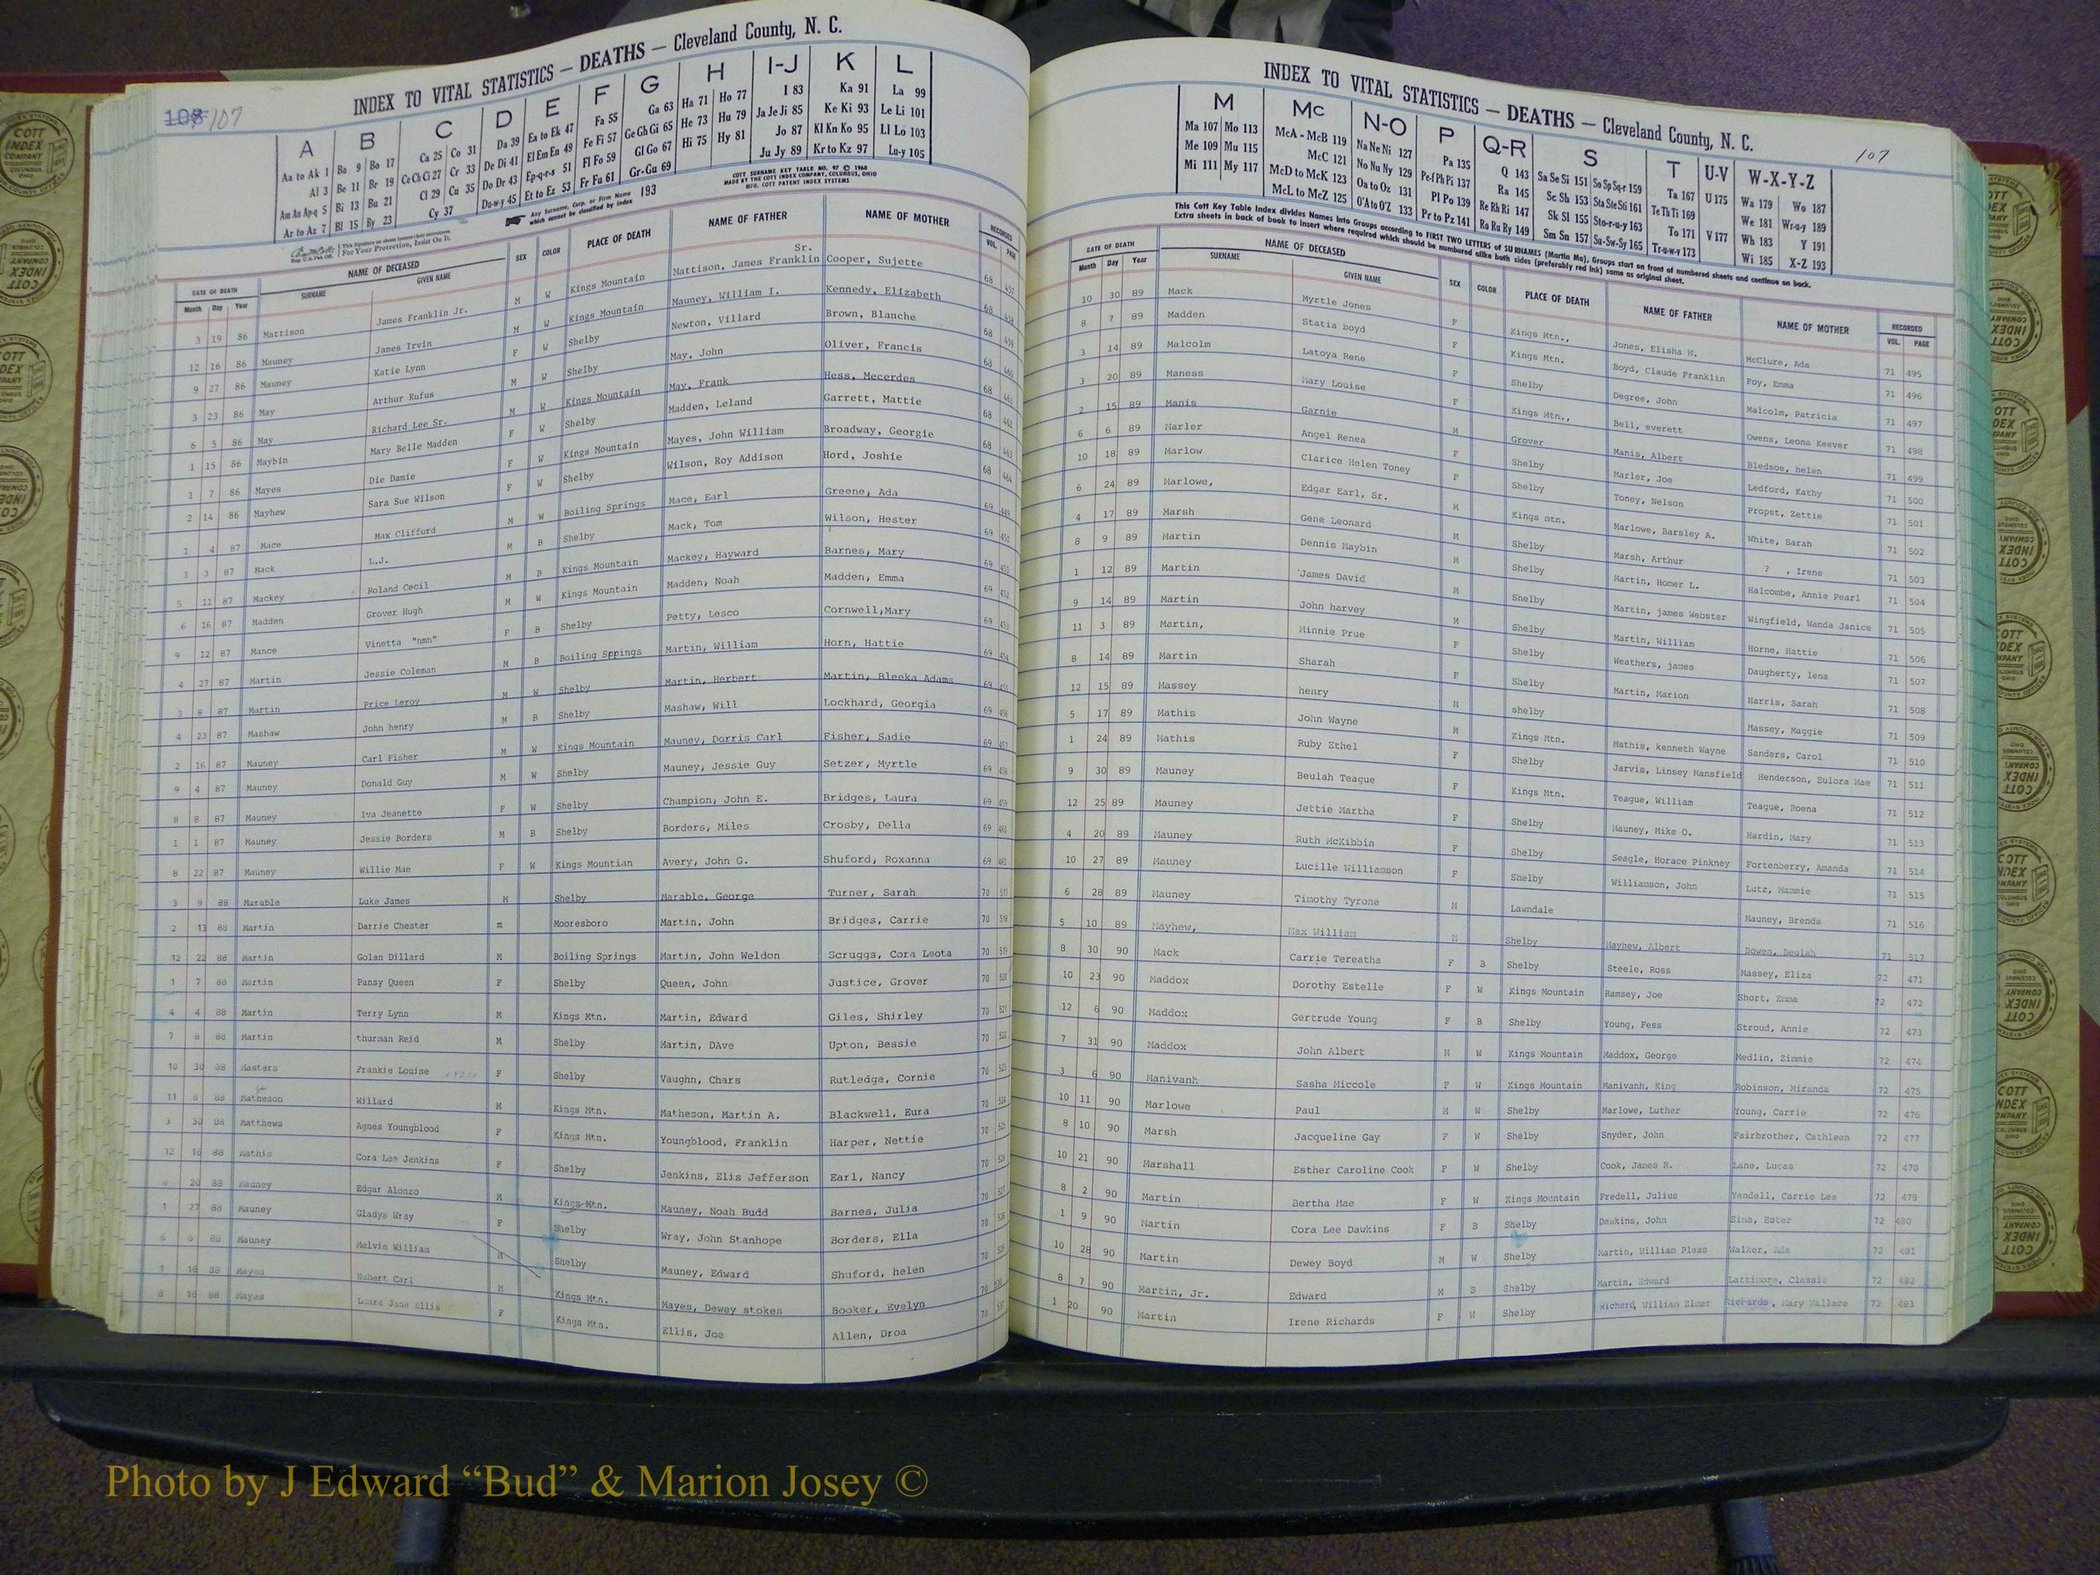 INDEX TO VITAL STATISTICS — DEATHS — Cleveland County, N. C.
107
A B C D E F G H I-J K L
Aa to Ak 1 Ba 9 Bo 17 Ca 25 Co 31 Da 39 Ea to Ek 47 Fa 55 Ga 63 Ha 71 Ho 77 I 83 Ka 91 La 99
Al 3 Be 11 Br 19 Ce Ch Ci 27 Cr 33 De Di 41 El Em En 49 Fe Fi 57 Ge Gh Gi 65 He 73 Hu 79 Ja Je Ji 85 Ke Ki 93 Le Li 101
Am An Ap-q 5 Bi 13 Bu 21 Cl 29 Cu 35 Do Dr 43 Ep-q-r-s 51 Fl Fo 59 Gl Go 67 Hi 75 Hy 81 Jo 87 Kl Kn Ko 95 Ll Lo 103
Ar to Az 7 Bl 15 By 23 Cy 37 Du-w-y 45 Et to Ez 53 Fr Fu 61 Gr-Gu 69 Ju Jy 89 Kr to Kz 97 Lu-y 105
Any Surname, Corp. or Firm Name which cannot be classified by Index 193
COTT SURNAME KEY TABLE NO. 97 © 1960
MADE BY THE COTT INDEX COMPANY, COLUMBUS, OHIO
MFG. COTT PATENT INDEX SYSTEMS
This Signature on sheets insures Only instructions. For Your Protection, Insist On It.
DATE OF DEATH NAME OF DECEASED SEX COLOR PLACE OF DEATH NAME OF FATHER NAME OF MOTHER RECORDED
Month Day Year SURNAME GIVEN NAME VOL. PAGE
3 19 86 Mattison James Franklin Jr. M W Kings Mountain Mattison, James Franklin Sr. Cooper, Sujette 68 457
12 16 86 Mauney James Irvin M W Kings Mountain Mauney, William I. Kennedy, Elizabeth 68 458
9 27 86 Mauney Katie Lynn F W Shelby Newton, Villard Brown, Blanche 68 459
3 23 86 May Arthur Rufus M W Shelby May, John Oliver, Francis 68 460
6 5 86 May Richard Lee Sr. M W Kings Mountain May, Frank Hess, Mecerdes 68 461
1 15 86 Maybin Mary Belle Madden F W Shelby Madden, Leland Garrett, Mattie 68 462
1 7 86 Mayes Die Damie F W Kings Mountain Mayes, John William Broadway, Georgie 68 463
2 14 86 Mayhew Sara Sue Wilson F W Shelby Wilson, Roy Addison Hord, Joshie 68 464
1 4 87 Mace Max Clifford M W Boiling Springs Mace, Earl Greene, Ada 69 449
3 3 87 Mack L.J. M B Shelby Mack, Tom Wilson, Hester 69 450
5 11 87 Mackey Roland Cecil M B Kings Mountain Mackey, Hayward Barnes, Mary 69 451
6 16 87 Madden Grover Hugh M W Kings Mountain Madden, Noah Madden, Emma 69 452
9 12 87 Mance Vinetta "nmn" F B Shelby Petty, Lesco Cornwell,Mary 69 453
4 27 87 Martin Jessie Coleman M B Boiling Sppings Martin, William Horn, Hattie 69 454
3 8 87 Martin Price Leroy M W Shelby Martin, Herbert Martin, Bleeka Adams 69 455
4 23 87 Mashaw John henry M B Shelby Mashaw, Will Lockhard, Georgia 69 456
2 16 87 Mauney Carl Fisher M W Kings Mountain Mauney, Dorris Carl Fisher, Sadie 69 457
9 4 87 Mauney Donald Guy M W Shelby Mauney, Jessie Guy Setzer, Myrtle 69 458
8 8 87 Mauney Iva Jeanette F W Shelby Champion, John E. Bridges, Laura 69 459
1 1 87 Mauney Jessie Borders M B Shelby Borders, Miles Crosby, Della 69 460
8 22 87 Mauney Willie Mae F W Kings Mountian Avery, John G. Shuford, Roxanna 69 461
3 9 88 Marable Luke James M Shelby Marable, George Turner, Sarah 70 517
2 13 88 Martin Darrie Chester m Mooresboro Martin, John Bridges, Carrie 70 518
12 22 88 Martin Golan Dillard M Boiling Springs Martin, John Weldon Scruggs, Cora Leota 70 519
1 7 88 Martin Pansy Queen F Shelby Queen, John Justice, Grover 70 520
4 4 88 Martin Terry Lynn M Kings Mtn. Martin, Edward Giles, Shirley 70 521
7 8 88 Martin thurman Reid M Shelby Martin, DAve Upton, Bessie 70 522
10 30 88 Masters Frankie Louise F Shelby Vaughn, Chars Rutledge, Cornie 70 523
11 8 88 Matheson Willard M Kings Mtn. Matheson, Martin A. Blackwell, Eura 70 524
3 30 88 Matthews Agnes Youngblood F Kings Mtn. Youngblood, Franklin Harper, Nettie 70 525
12 16 88 Mathis Cora Lee Jenkins F Shelby Jenkins, Elis Jefferson Earl, Nancy 70 526
20 88 Mauney Edgar Alonzo M Kings Mtn. Mauney, Noah Budd Barnes, Julia 70 527
1 27 88 Mauney Gladys Wray F Shelby Wray, John Stanhope Borders, Ella 70 528
6 6 88 Mauney Melvin William M Shelby Mauney, Edward Shuford, helen 70 529
1 16 88 Mayes Hubert Carl M Kings Mtn. Mayes, Dewey stokes Booker, Evelyn 70 530
8 16 88 Mayes Luara Jane Ellis F Kings Mtn. Ellis, Joe Allen, Droa 70 531
INDEX TO VITAL STATISTICS — DEATHS — Cleveland County, N. C.
107
M Mc N-O P Q-R S T U-V W-X-Y-Z
Ma 107 Mo 113 McA - McB 119 Na Ne Ni 127 Pa 135 Q 143 Sa Se Si 151 So Sp Sq-r 159 Ta 167 U 175 Wa 179 Wo 187
Me 109 Mu 115 McC 121 No Nu Ny 129 Pe-f Ph Pi 137 Ra 145 Sc Sh 153 Sta Ste Sti 161 Te Th Ti 169 V 177 We 181 Wr-u-y 189
Mi 111 My 117 McD to McK 123 Oa to Oz 131 Pl Po 139 Re Rh Ri 147 Sk Sl 155 Sto-r-u-y 163 To 171 Wh 183 Y 191
McL to McZ 125 O'A to O'Z 133 Pr to Pz 141 Ro Ru Ry 149 Sm Sn 157 Su-Sw-Sy 165 Tr-u-w-y 173 Wi 185 X-Z 193
This Cott Key Table Index divides Names into Groups according to FIRST TWO LETTERS of SURNAMES (Martin Ma), Groups start on front of numbered sheets and continue on back.
Extra sheets in back of book to insert where required which should be numbered alike both sides (preferably red ink) same as original sheet.
DATE OF DEATH NAME OF DECEASED SEX COLOR PLACE OF DEATH NAME OF FATHER NAME OF MOTHER RECORDED
Month Day Year SURNAME GIVEN NAME VOL. PAGE
10 30 89 Mack Myrtle Jones F Kings Mtn., Jones, Elisha W. McClure, Ada 71 495
8 7 89 Madden Statia boyd F Kings Mtn. Boyd, Claude Franklin Foy, Emma 71 496
3 14 89 Malcolm Latoya Rene F Shelby Degree, John Malcolm, Patricia 71 497
3 20 89 Maness Mary Louise F Kings Mtn., Bell, everett Owens, Leona Keever 71 498
2 15 89 Manis Garnie M Grover Manis, Albert Bledsoe, helen 71 499
6 6 89 Marler Angel Renea F Shelby Marler, Joe Ledford, Kathy 71 500
10 18 89 Marlow Clarice Helen Toney F Shelby Toney, Nelson Propst, Zettie 71 501
6 24 89 Marlowe, Edgar Earl, Sr. M Kings mtn. Marlowe, Barsley A. White, Sarah 71 502
4 17 89 Marsh Gene Leonard M Shelby Marsh, Arthur ? , Irene 71 503
8 9 89 Martin Dennis Maybin M Shelby Martin, Homer L. Halcombe, Annie Pearl 71 504
1 12 89 Martin James David M Shelby Martin, james Webster Wingfield, Wanda Janice 71 505
9 14 89 Martin John harvey M Shelby Martin, William Horne, Hattie 71 506
11 3 89 Martin, Minnie Prue F Shelby Weathers, james Daugherty, lena 71 507
8 14 89 Martin Sharah F Shelby Martin, Marion Harris, Sarah 71 508
12 15 89 Massey henry M shelby Massey, Maggie 71 509
5 17 89 Mathis John Wayne M Kings Mtn. Mathis, kenneth Wayne Sanders, Carol 71 510
1 24 89 Mathis Ruby Ethel F Shelby Jarvis, Linsey Mansfield Henderson, Eulora Mae 71 511
9 30 89 Mauney Beulah Teague F Kings Mtn. Teague, William Teague, Roena 71 512
12 25 89 Mauney Jettie Martha F Shelby Mauney, Mike O. Hardin, Mary 71 513
4 20 89 Mauney Ruth McKibbin F Shelby Seagle, Horace Pinkney Fortenberry, Amanda 71 514
10 27 89 Mauney Lucille Williamson F Shelby Williamson, John Lutz, Mammie 71 515
6 28 89 Mauney Timothy Tyrone M Lawndale Mauney, Brenda 71 516
5 10 89 Mayhew, Max William M Shelby Mayhew, Albert Bowen, Beulah 71 517
8 30 90 Mack Carrie Tereatha F B Shelby Steele, Ross Massey, Eliza 72 471
10 23 90 Maddox Dorothy Estelle F W Kings Mountain Ramsey, Joe Short, Emma 72 472
12 6 90 Maddox Gertrude Young F B Shelby Young, Fess Stroud, Annie 72 473
7 31 90 Maddox John Albert M W Kings Mountain Maddox, George Medlin, Zimmie 72 474
3 6 90 Manivanh Sasha Miccole F W Kings Mountain Manivanh, King Robinson, Miranda 72 475
10 11 90 Marlowe Paul M W Shelby Marlowe, Luther Young, Carrie 72 476
8 10 90 Marsh Jacqueline Gay F W Shelby Snyder, John Fairbrother, Cathleen 72 477
10 21 90 Marshall Esther Caroline Cook F W Shelby Cook, James R. Lane, Lucas 72 478
8 2 90 Martin Bertha Mae F W Kings Mountain Fredell, Julius Yandell, Carrie Lee 72 479
1 9 90 Martin Cora Lee Dawkins F B Shelby Dawkins, John Sims, Ester 72 480
10 28 90 Martin Dewey Boyd M W Shelby Martin, William Pless Walker, Ada 72 481
8 7 90 Martin, Jr. Edward M B Shelby Martin, Edward Lattimore, Classie 72 482
1 20 90 Martin Irene Richards F W Shelby Richerd, William Elmer Richards, Mary Wallace 72 483
Photo by J Edward “Bud” & Marion Josey ©